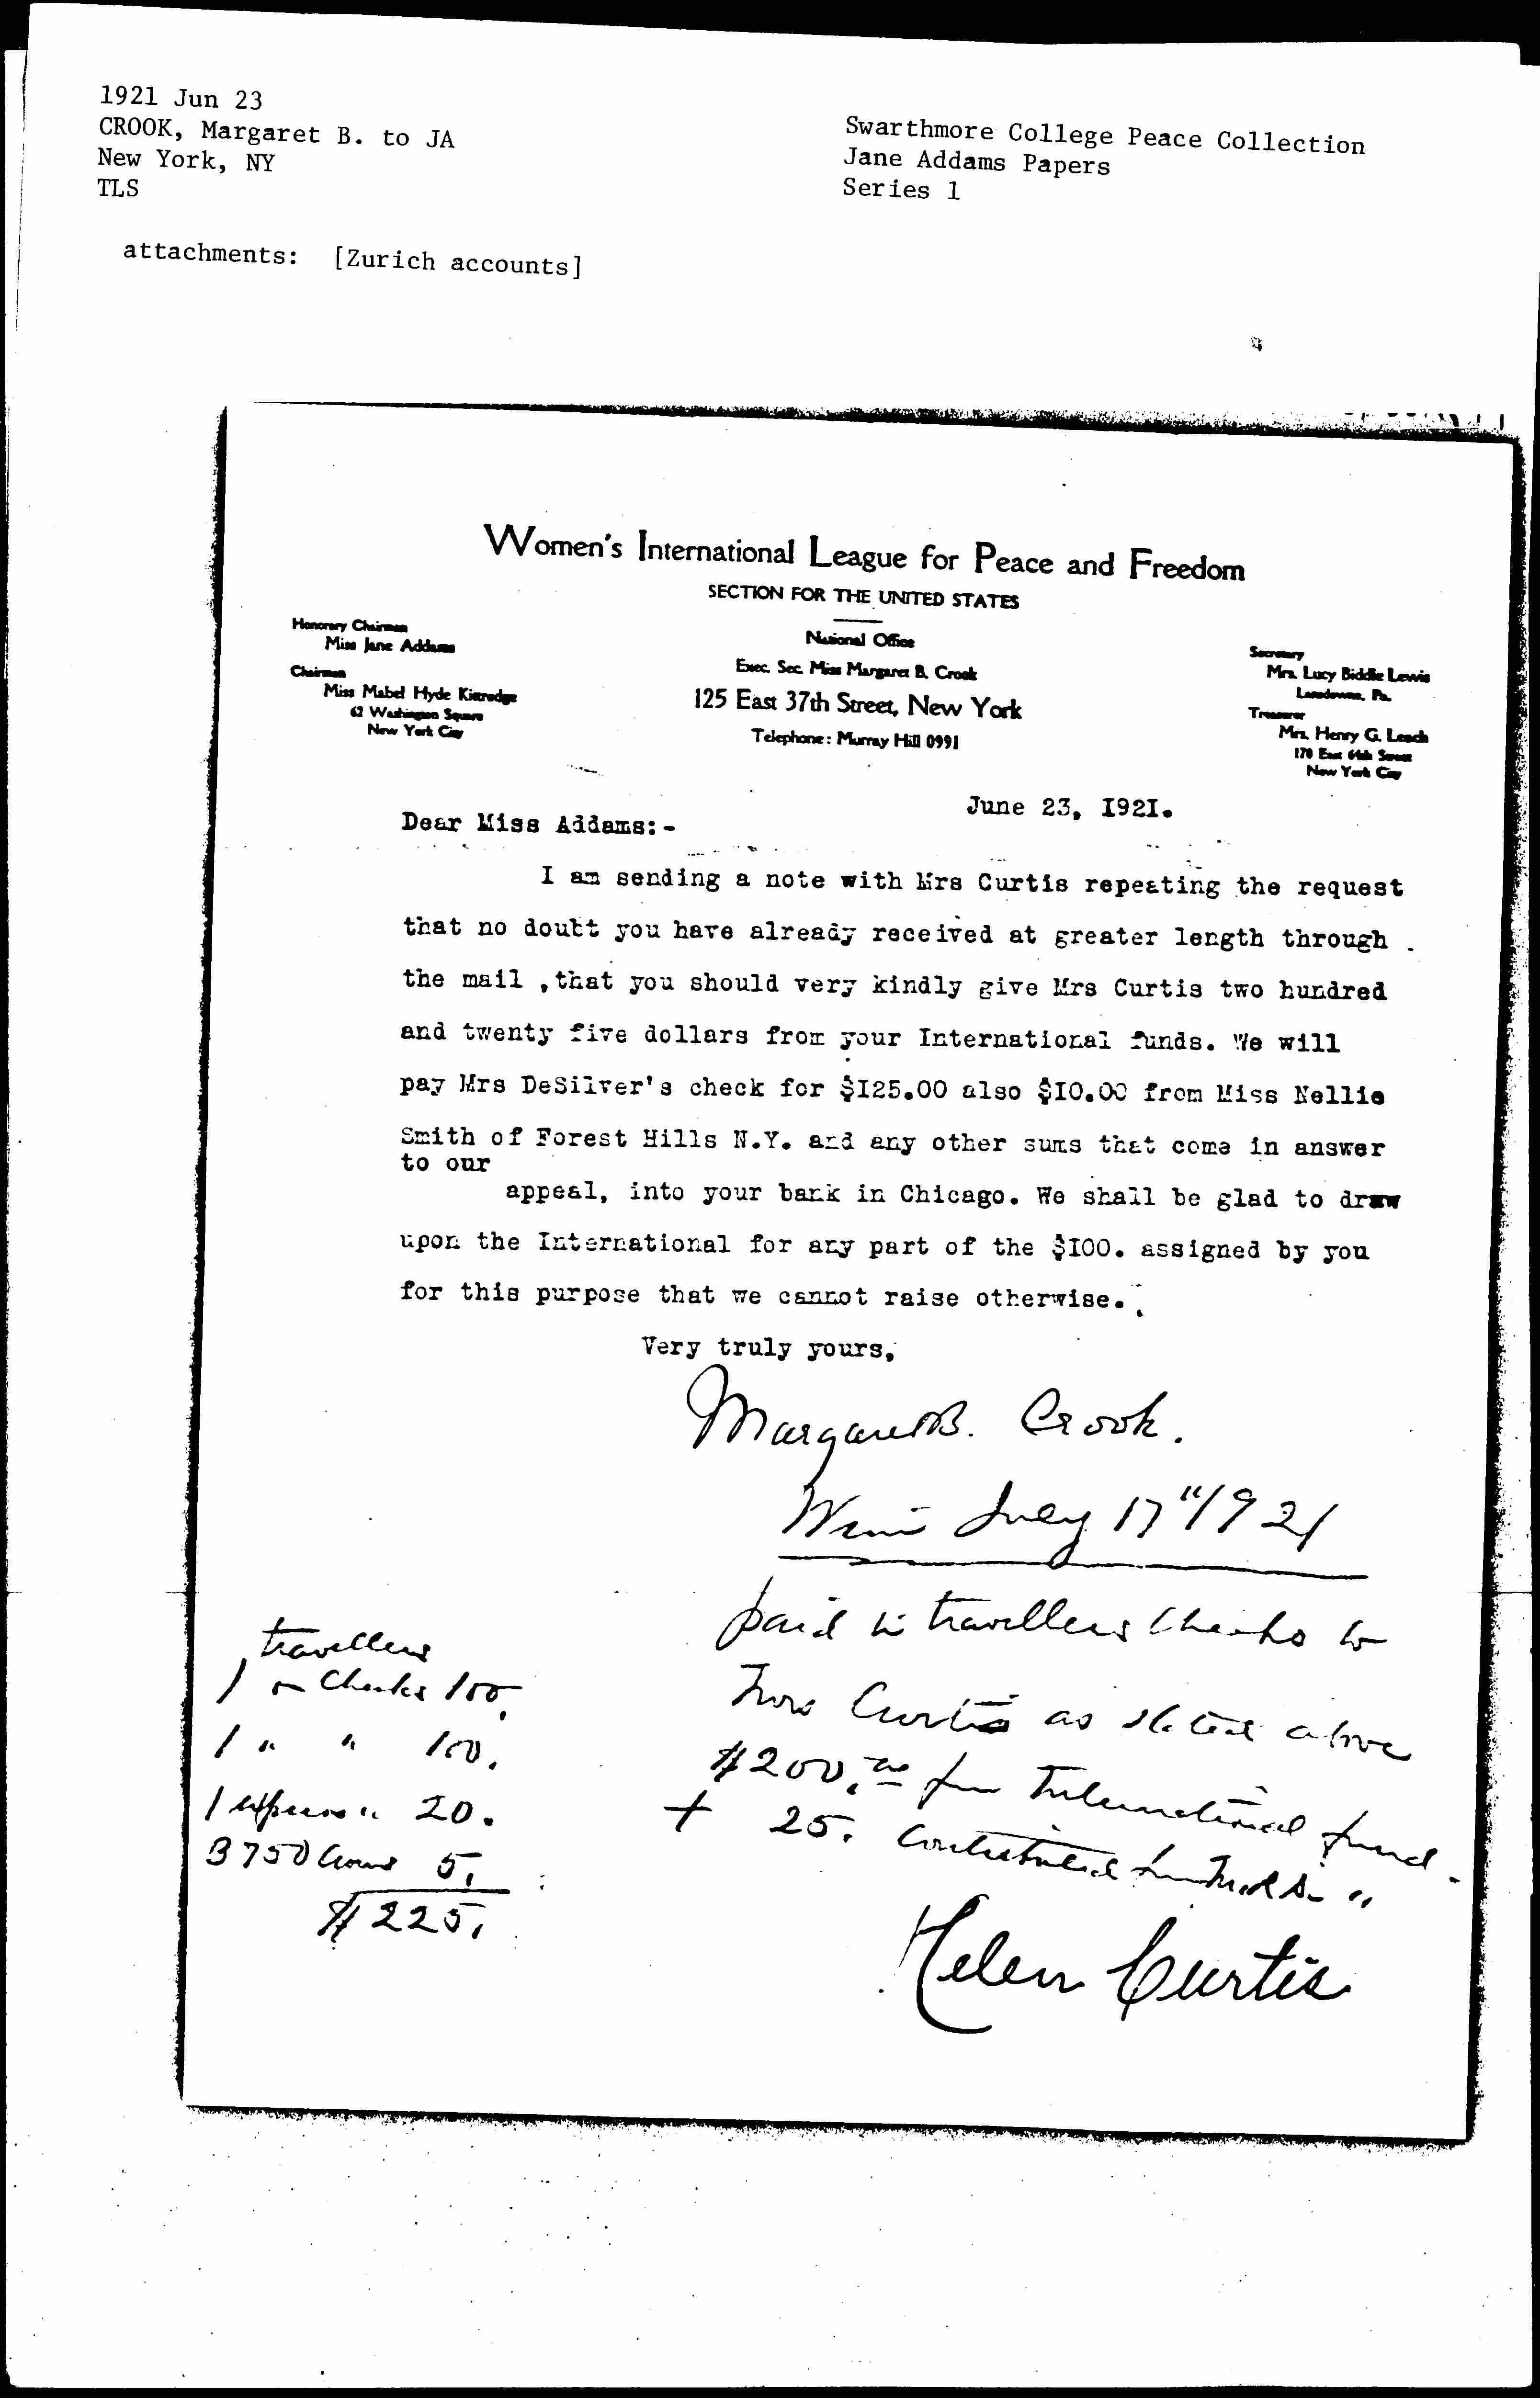 1921 Jun 23
CROOK, Margaret B. to JA
New York, NY
TLS
attachments: [Zurich accounts]
Swarthmore College Peace Collection
Jane Addams Papers
Series 1
Women's International League for Peace and Freedom
SECTION FOR THE UNITED STATES
Honorary Chairman
Miss Jane Addams
Chairman
Miss Mabel Hyde Kittredge
62 Washington Square
New York City
National Office
Exec. Sec. Miss Margaret B. Crook
125 East 37th Street, New York
Telephone: Murray Hill 0991
Secretary
Mrs. Lucy Biddle Lewis
Lansdowne, Pa.
Treasurer
Mrs. Henry G. Leach
170 East 64th Street
New York City
June 23, I92I.
Dear Miss Addams:-
I am sending a note with Mrs Curtis repeating the request
that no doubt you have already received at greater length through
the mail ,that you should very kindly give Mrs Curtis two hundred
and twenty five dollars from your International funds. We will
pay Mrs DeSilver's check for $I25.00 also $IO.00 from Miss Nellie
Smith of Forest Hills N.Y. and any other sums that come in answer
to our
appeal, into your bank in Chicago. We shall be glad to draw
upon the International for any part of the $IOO. assigned by you
for this purpose that we cannot raise otherwise.
Very truly yours,
Margaret B. Crook.
July 17" 1921
paid in travellers checks to
Mrs Curtis as stated above
$200.00 from International fund.
+ 25. contributed "
Helen Curtis
travellers
1 Checks 100.
1 " " 100.
1 express " 20.
3750 Crowns 5.
$225.